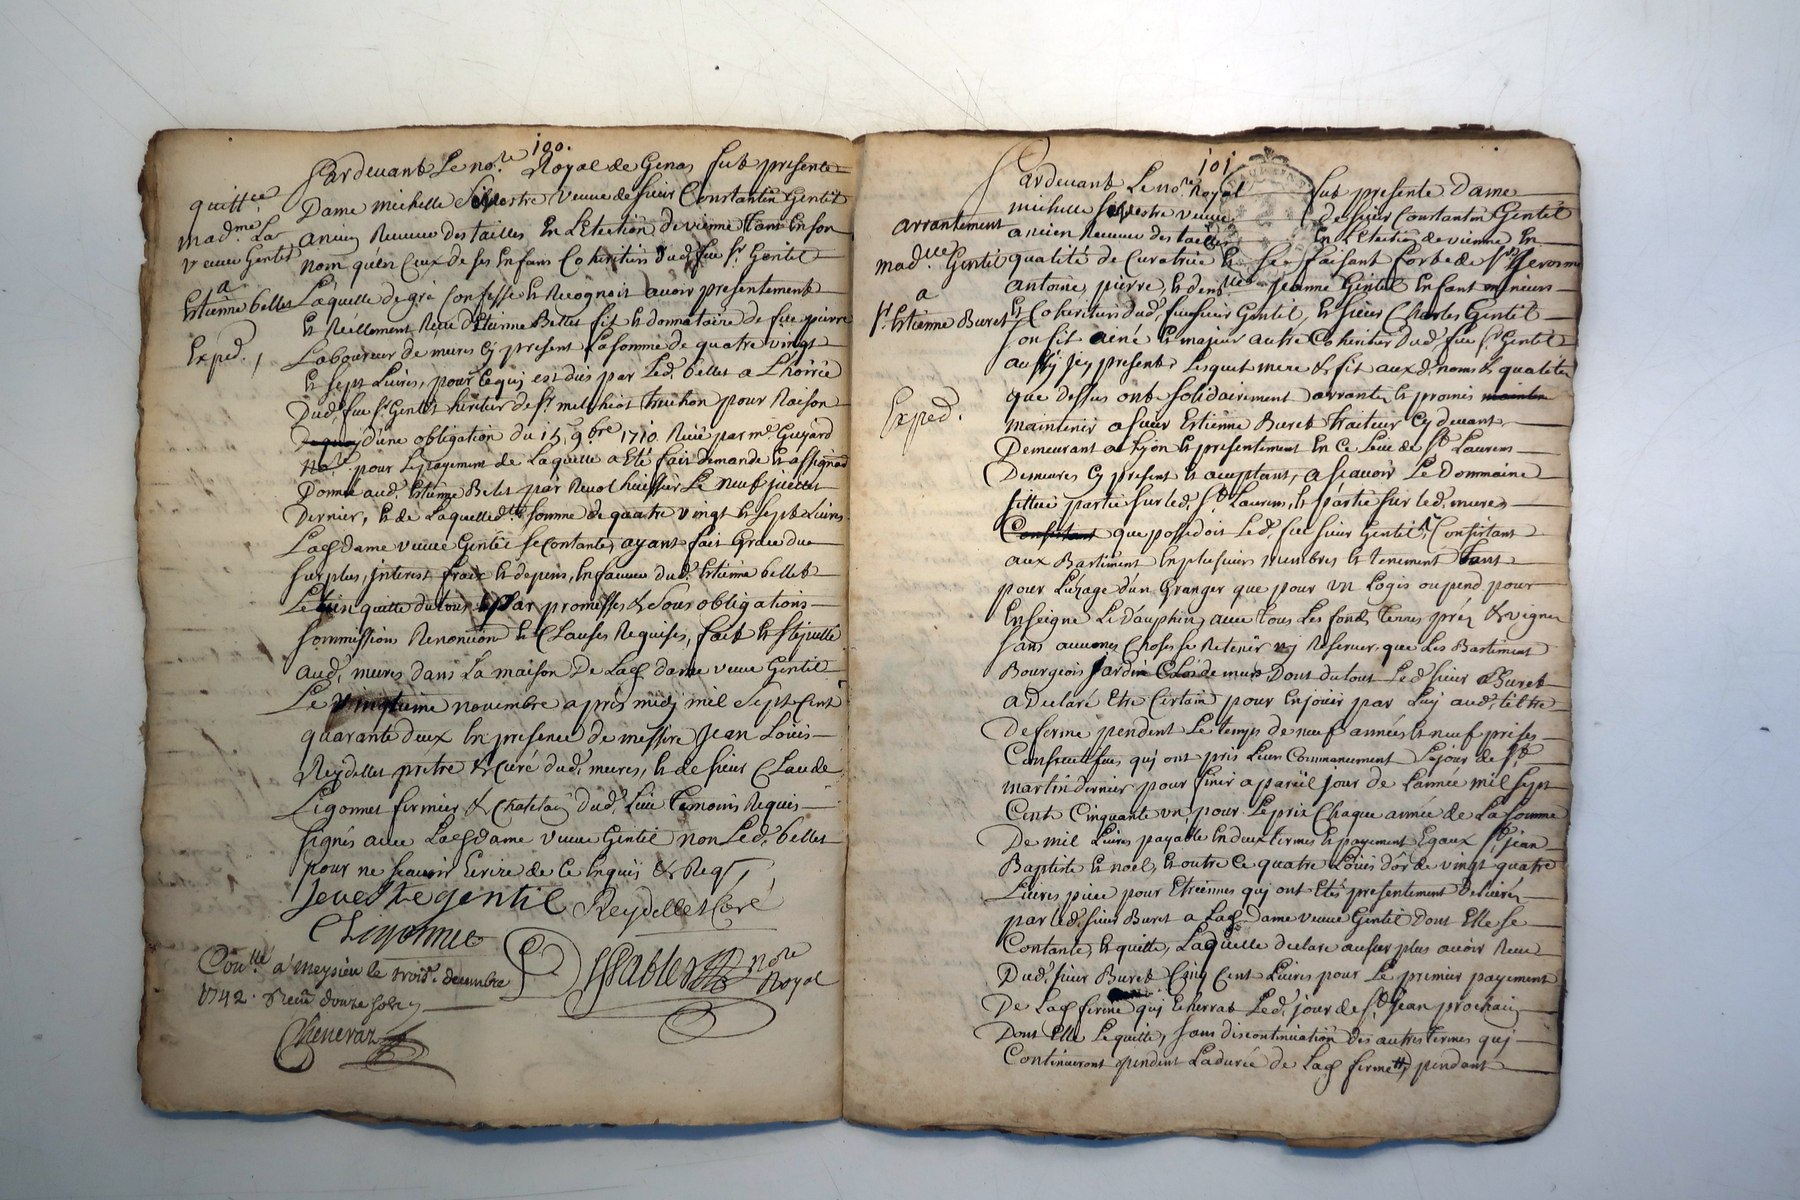 100.
quitt.ce
mad.me La
veuve Gentil
a
Estienne belles
Exped.
Pardevant Le no.re Royal de Genas fut presente
Dame michelle Silvestre veuve de sieur Constantin Gentil
ancien Receveur des tailles En L'Election de vienne tant En son
nom qu'en Ceux de ses Enfans Coheritiers dud. feu Sr. Gentil
Laquelle de gré Confesse & Recognoit avoir presentement
& Réellement Receu d'Etienne Belles fils & donnataire de feu pierre
Laboureur de mures Cy present La somme de quatre vingt
& sept Livres, pour le quij est dus par Led. belles a L'hoirie
Dud. feu Sr. Gentil heritier de Sr. melchiot truchon pour Raison
d'une obligation du 15. 9.bre 1710. Receu par me. Guyard
No.re pour Le payement de Laquelle a Eté fait demande & assignaõn
Donné aud. Estienne Beles par Revol huissier Le neuf juillet
Dernier, & de Laquelle d.te somme de quatre vingt & sept Livres
Lad. Dame veuve Gentil se Contante, ayant fait Grace du
surplus, interest fraix & depens, En faveur dud. Estienne belles
Le tien quitte du tout par promesses & sous obligations
sommission Renontion & Clauses Requises, fait & stipullé
aud. mures dans La maison De Lad. dame veuve Gentil
Le vingtieme novembre apres midj mil sept Cent
quarante deux En presence de messire Jean Louis
Reydellet pretre & Curé dud. mures, & de sieur Claude
Ligonnet fermier & Chatelain dud. Lieu Temoins Requis
signés avec Lad. dame veuve Gentil non Led. belles
pour ne sçavoir Ecrire de Ce Enquis & Req.
Sevestre gentil Reydellet Curé
C Ligonnet
no.re Royal
Con.lle a meysieu le trois.e decembre
1742. Receu douze sols
Cheneraz
101
arrantement
Mad.lle Gentil
a
Sr. Estienne Buret
Exped.
Pardevant Le no.re Royal fut presente Dame
michelle Silvestre veuve de sieur Constantin Gentil
ancien Receveur des tailles En L'Election de vienne En
qualité de Curatrice & se faisant forte de Srs. Jerosme
antoine, pierre, & dem.lle jeanne Gentil Enfant mineurs
& Coheritiers dud. feu sieur Gentil, & sieur Charles Gentil
son fils ainé & majeur autre Coheritier dud. feu Sr. Gentil
aussy jcy present, Lesquels mere & fils aux d. noms & qualités
que dessus ont solidairement arranté, & promis maintenir
maintenir a sieur Estienne Buret traiteur Cy devant
Demeurant a Lyon & presentement En Ce Lieu de St. Laurens
Demeures Cy present & acceptant, a sçavoir Le Dommaine
sittué partie sur led. St. Laurens, & partie sur led. mures
Consistant que possedoit Led. feu sieur Gentil, Consistant
aux Bastiment En plusieurs membres & tenement tant
pour L'uzage d'un Granger que pour un Logis ou pend pour
Enseigne Le Dauphin, avec tous Les fonds, terres, prés & vignes
sans aucunes Choses se Retenir nj Reserver que Les Bastiment
Bourgeois jardin Clos de murs Dont du tout Led. sieur Buret
a Declaré Etre Certain pour En jouir par Luy aud. tiltre
De ferme pendent Le temps de neuf années & neuf prises
Consecutives quj ont pris Leur Commencement Le jour de St.
martin dernier pour finir a pareil jour de L'année mil sept
Cent Cinquante un, pour Le prix Chaque année de La somme
De mil Livres payable En deux termes & payement Egaux St. jean
Baptiste & noel, & outre Ce quatre Louis d'or de vingt quatre
Livres piece pour Etrennes quj ont Etés presentement Delivrés
par led. sieur Buret a Lad. Dame veuve Gentil Dont Elle se
Contante, & quitte, Laquelle declare au surplus avoir Receu
Dud. sieur Buret Cinq Cent Livres pour Le premier payement
De Lad. ferme quj Echerrat Led. jour de St. Jean prochain
Dont Elle Le quitte, sans discontinuation des autres termes quj
Continueront pendent La durée de Lad. ferme, pendant